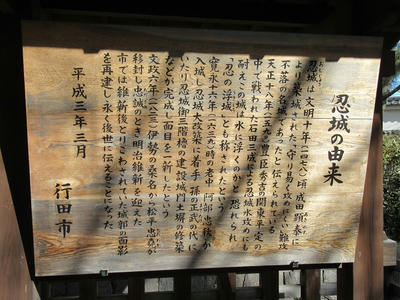 忍城の由来
忍城は文明十年(一四七八)頃成田顕泰に
より築城された、守り易く攻めにくい難攻
不落の名城であったと伝えられている
天正十八年(一五九〇)豊臣秀吉の関東平定の
中で戦われた石田三成による忍城水攻めにも
耐えこの城は水に浮くのかと恐れられ
「忍の浮城」とも称されたという
寛永十六年(一六三九)時の老中阿部忠秋が
入城し忍城大改築に着手、孫の正武の代に
いたり忍城御三階櫓の建設城門土塀の修築
などが完成し面目を一新したという
文政六年(一八二三)伊勢の桑名から松平忠堯が
移封し忠誠のとき明治維新を迎えた
市では維新後とりこわされていた城郭の面影
を再建し永く後世に伝えることになった
平成三年三月
行田市